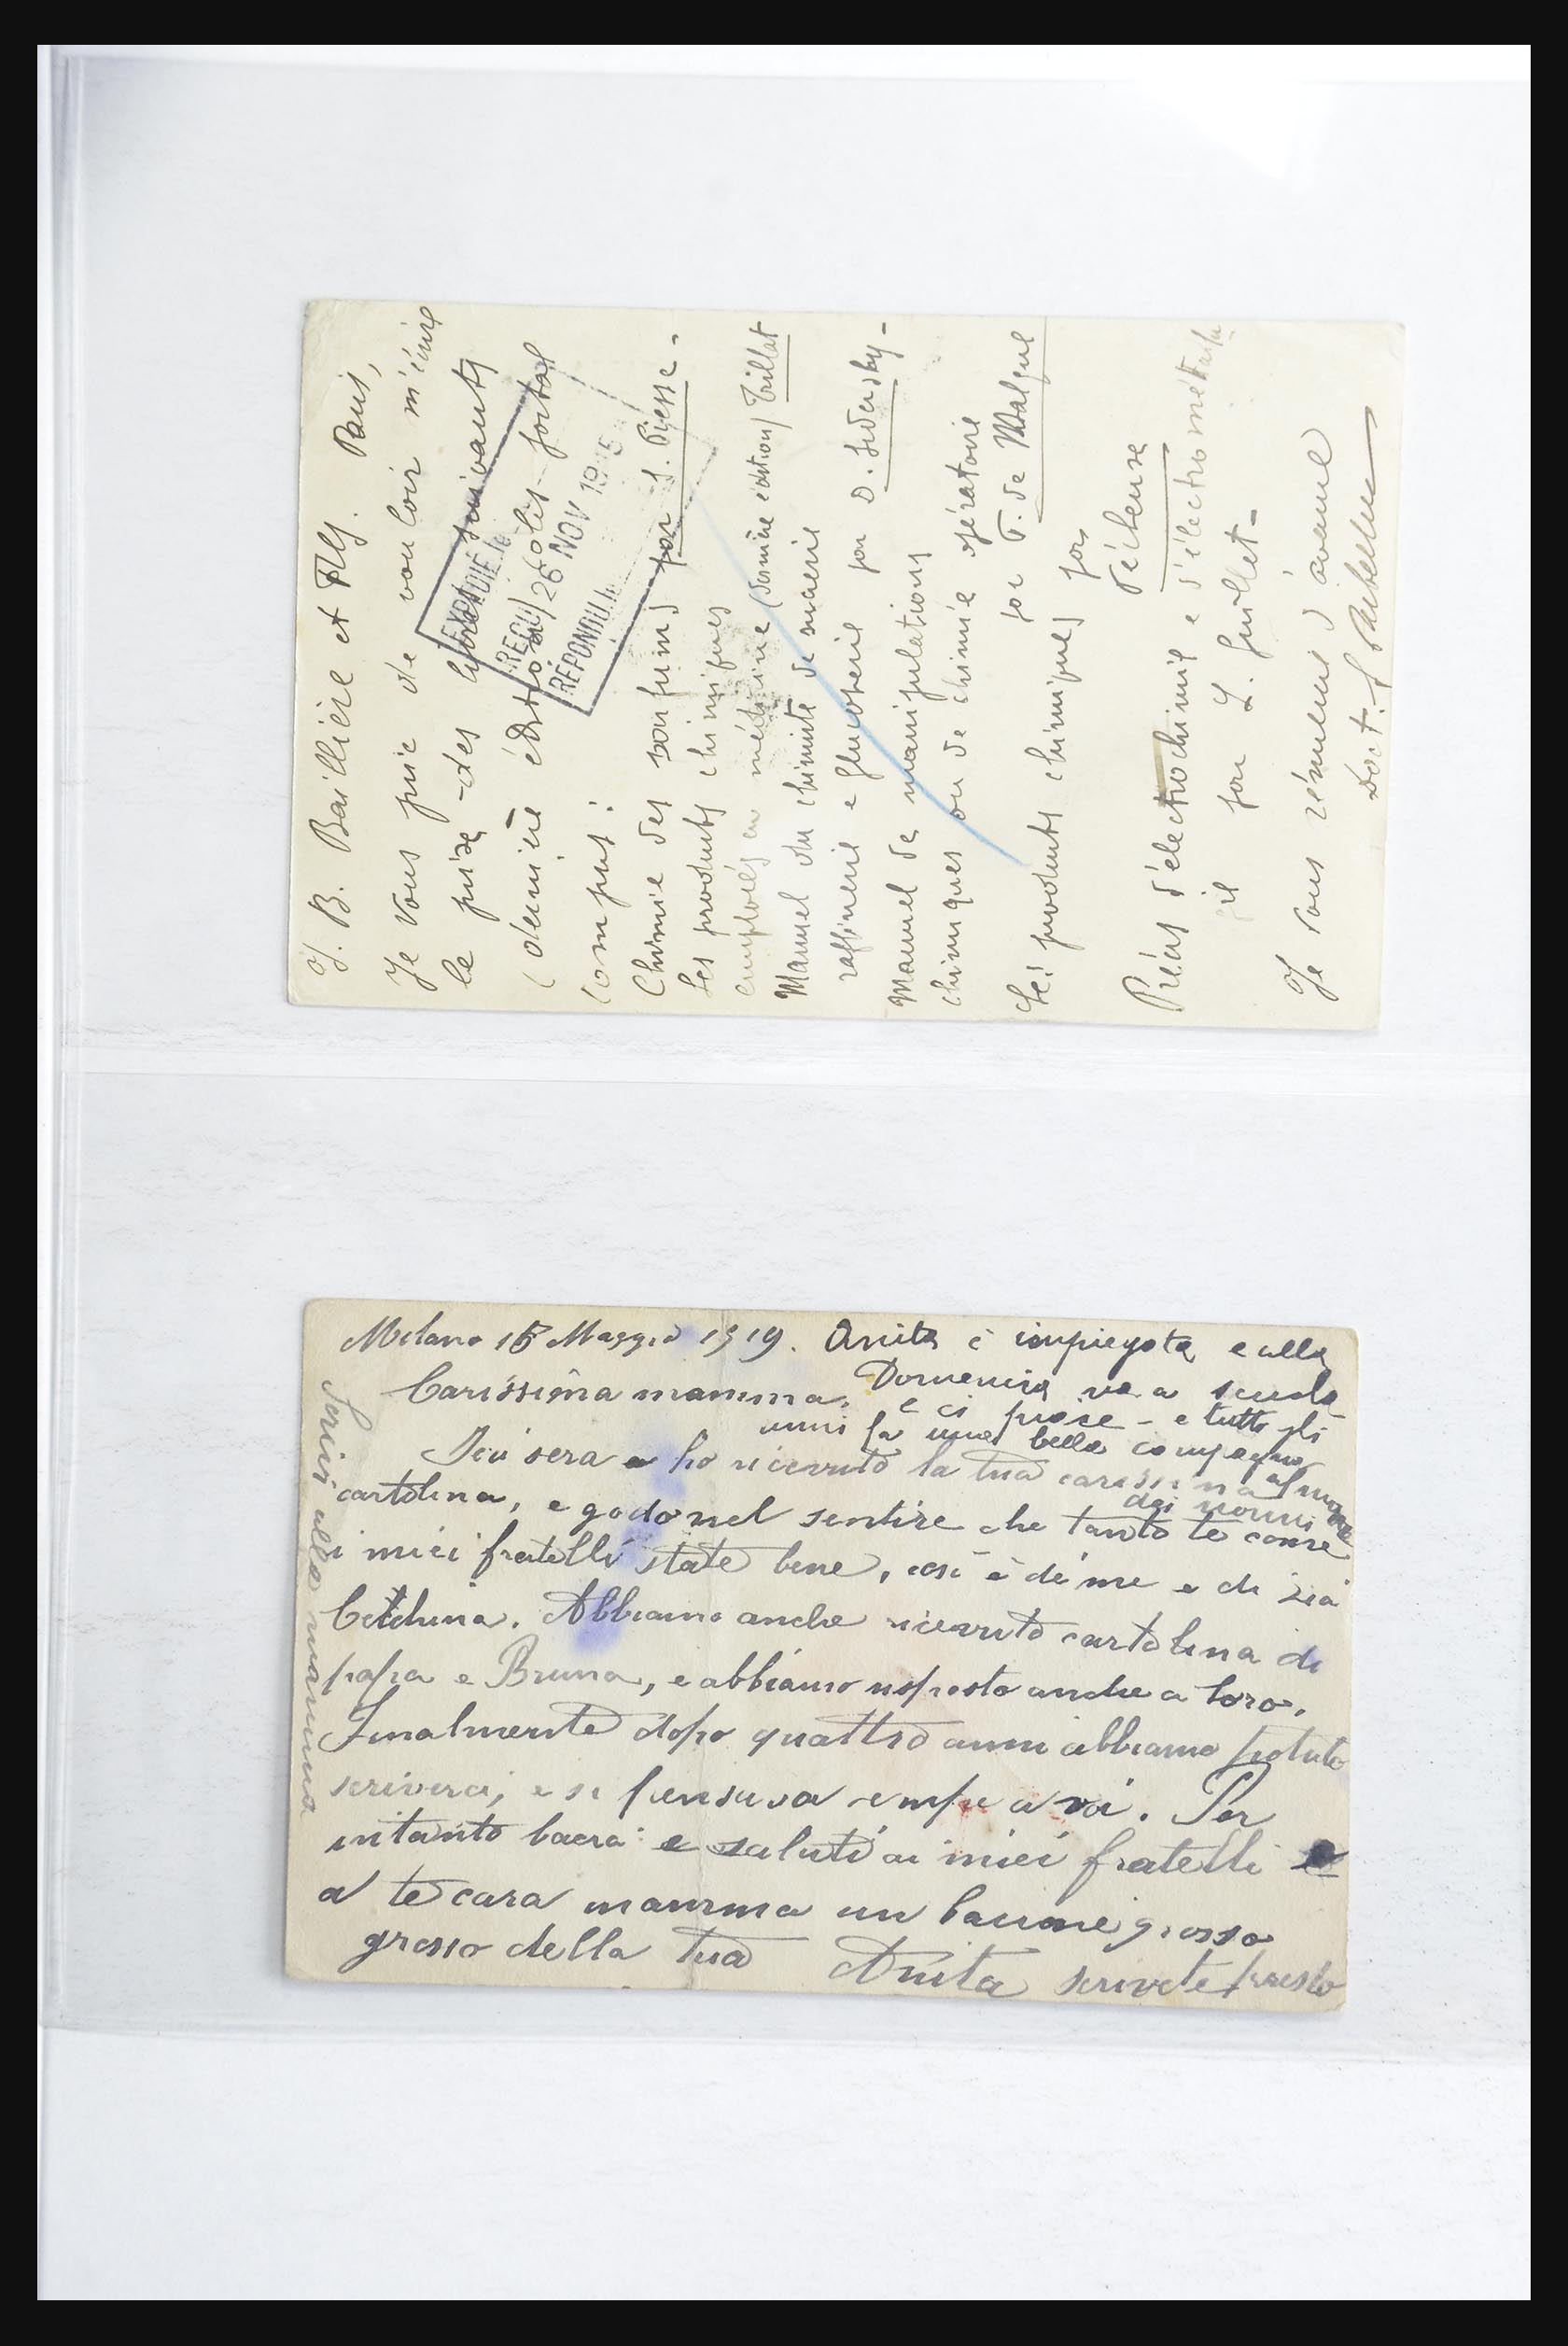 J. B. Baillière et Fils. Paris,
Je vous prie de vouloir m'écrire
le prise des livres suivants
(dernière édition) colis-postal
compris:
EXPÉDIÉ le
REÇU 26 NOV 19
RÉPONDU le
Chimie des parfums par S. Piesse.
Les produits chimiques
employés en médicine (dernière édition) Trillat
Manuel du chimiste de sucrerie
raffinerie e glucoserie par D. Sidersky-
Manuel de manipulations
chimiques ou de chimie opératoire
par F. de Malgue
Les produits chimiques par
Précis d'électrochimie e d'électrométallu
gie par L. Guillet-
Je vous rémercie d'avance
Dott.
Milano 15 Maggio 1919. Anita è impiegata e alla
Domenica va a scuola
e ci piace - e tutto gli
anni fa una bella
dei nonni
Carissima mamma.
Ieri sera ho ricevuto la tua carissima
cartolina, e godo nel sentire che tanto te come
i miei fratelli state bene, così è di me e di zia
Abbiamo anche ricevuto cartolina di
papa e Bruna, e abbiamo risposto anche a loro.
Finalmente dopo quattro anni abbiamo potuto
scriverci, e si pensava sempre a voi. Per
intanto baci e saluti ai miei fratelli e
a te cara mamma un bacione grosso
grosso della tua Anita scrivete presto
Scrivi alla mamma